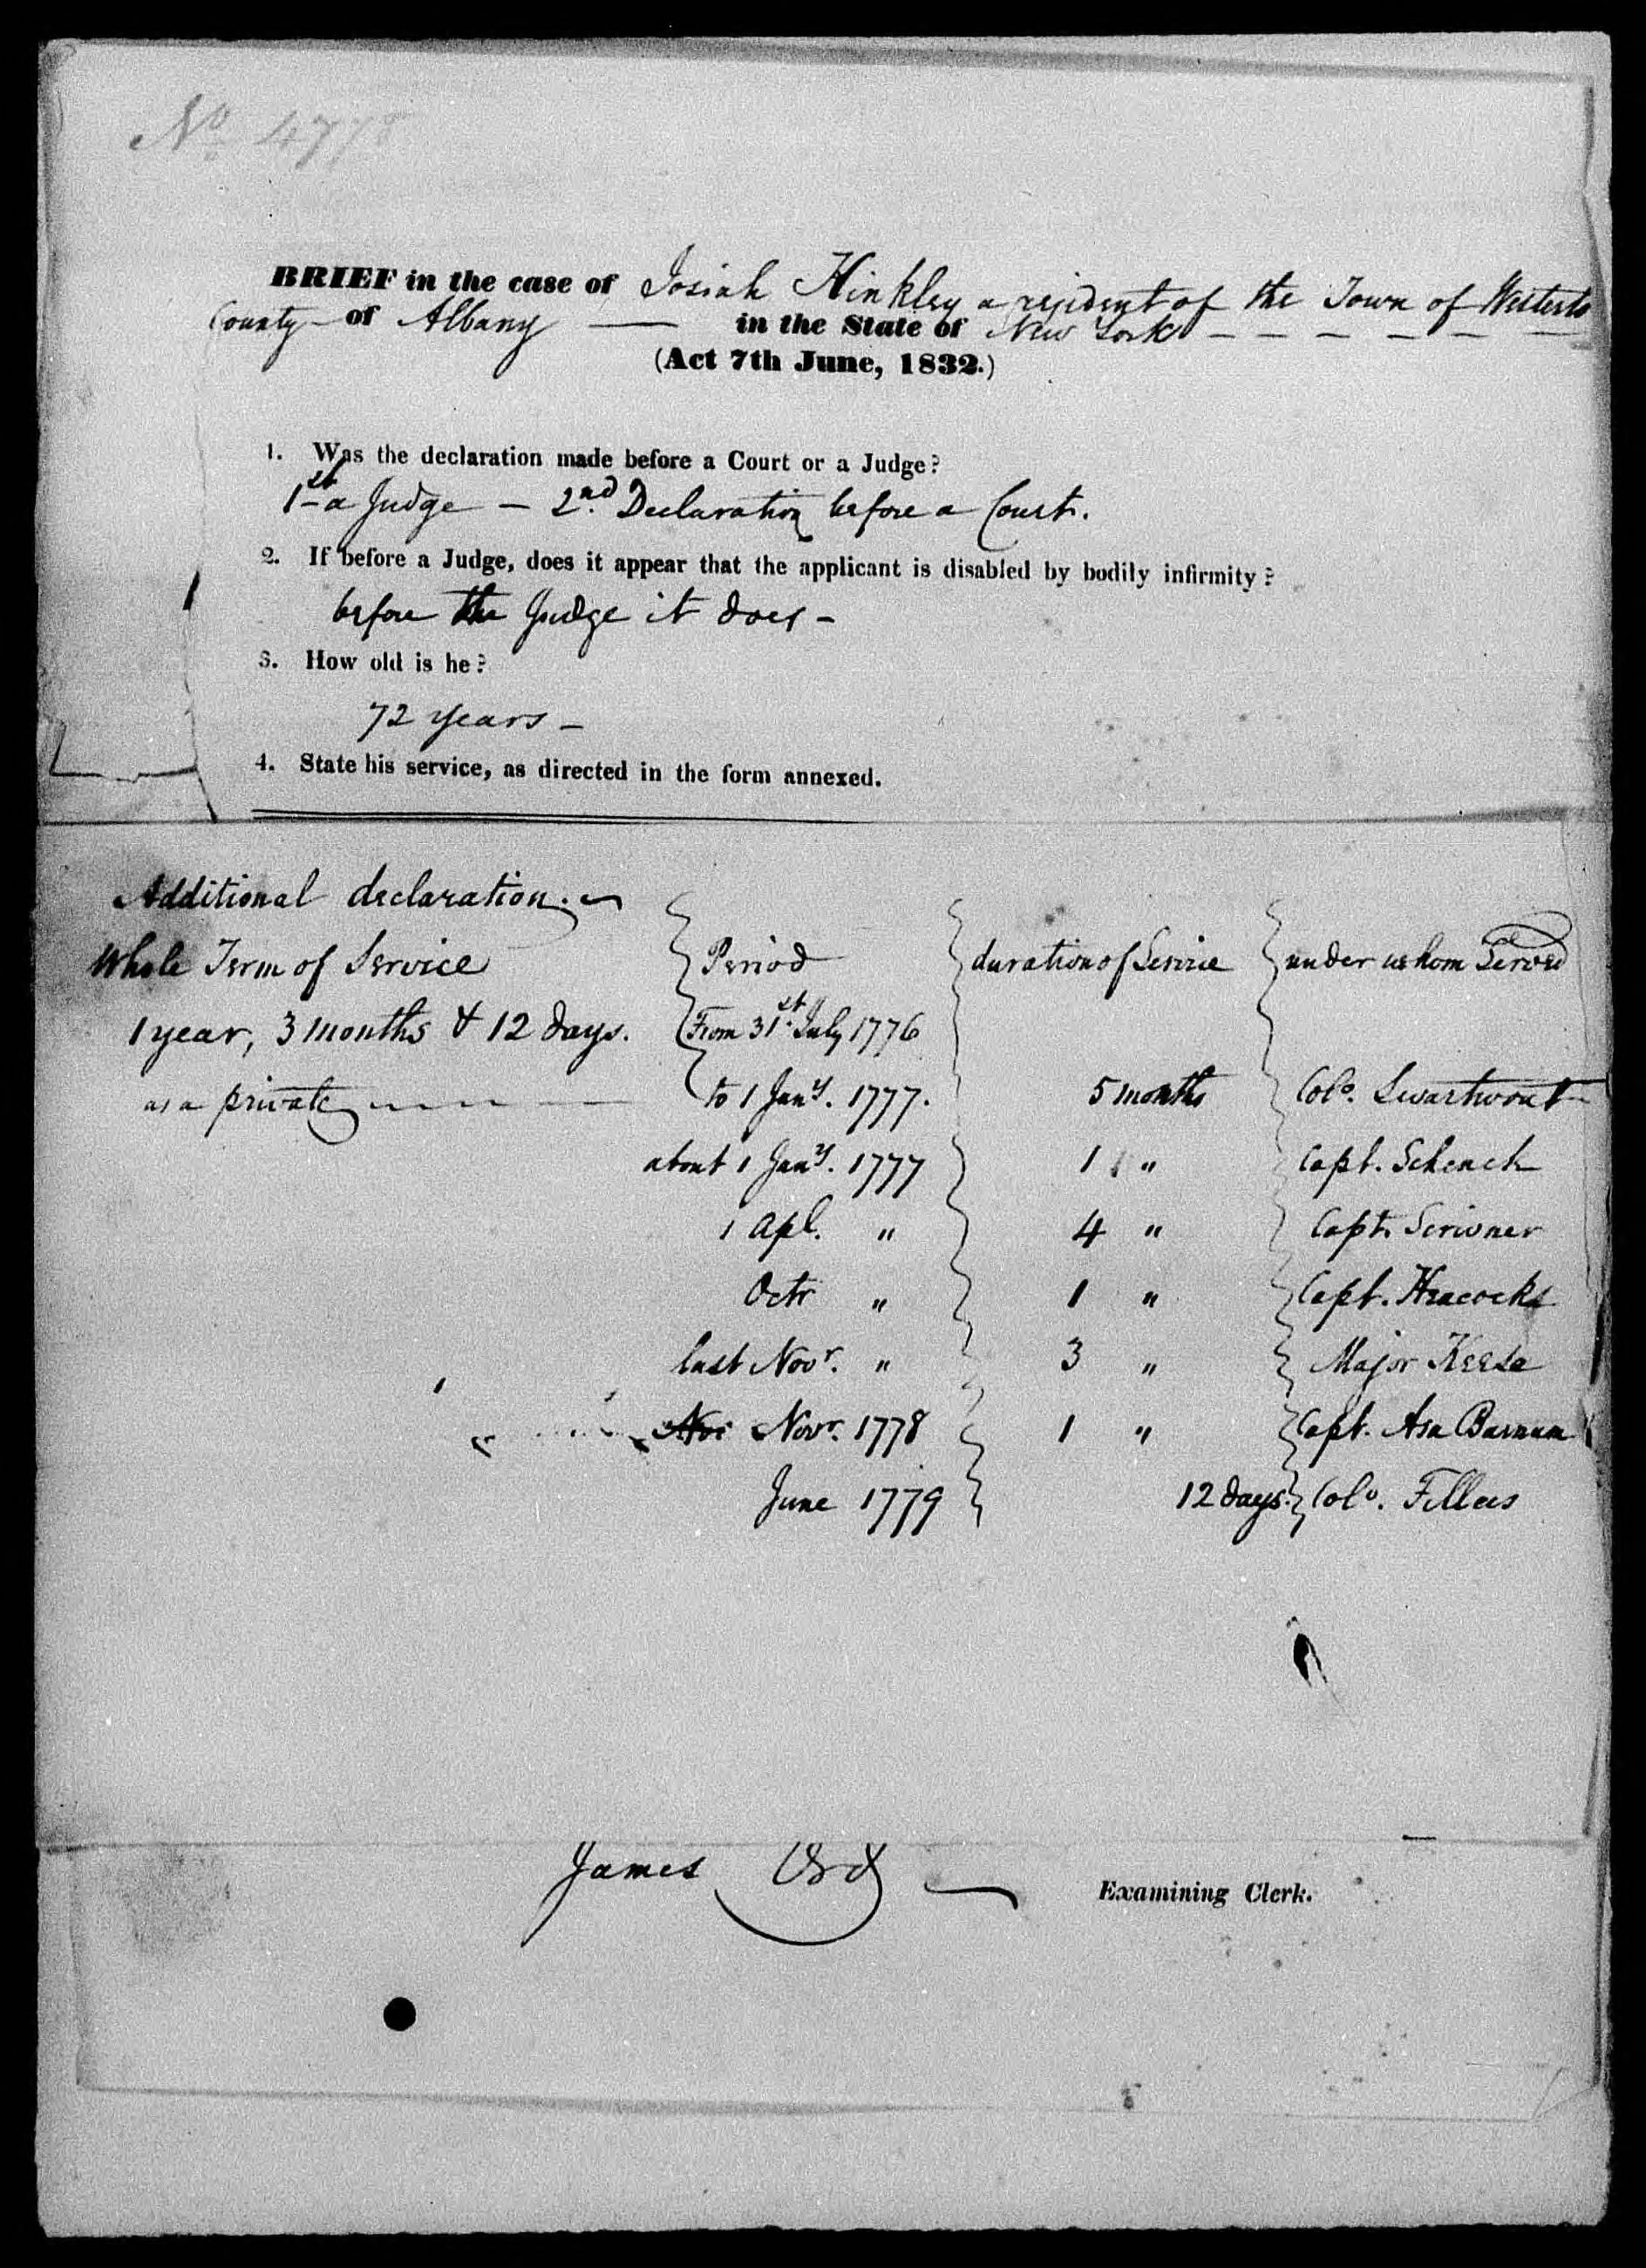 No 4778
BRIEF in the case of Josiah Hinkley a resident of the Town of Westerlo
County of Albany in the State of New York
(Act 7th June, 1832.)
1. Was the declaration made before a Court or a Judge?
1st a Judge – 2nd. Declaration before a Court.
2. If before a Judge, does it appear that the applicant is disabled by bodily infirmity?
before the Judge it does –
3. How old is he?
72 years –
4. State his service, as directed in the form annexed.
Additional declaration.
Whole Term of Service Period duration of Service under whom Served
1 year, 3 months & 12 days. From 31st. July 1776
as a private to 1 Jany. 1777. 5 months Colo. Swartwout
about 1 Jany. 1777 1 " Capt. Schenck
1 Apl. " 4 " Capt. Scrivner
Octr " 1 " Capt. Heacocks
last Novr. " 3 " Major Keese
Novr. 1778 1 " Capt. Asa Barnum
June 1779 12 days. Colo. Fellers
James Ord Examining Clerk.